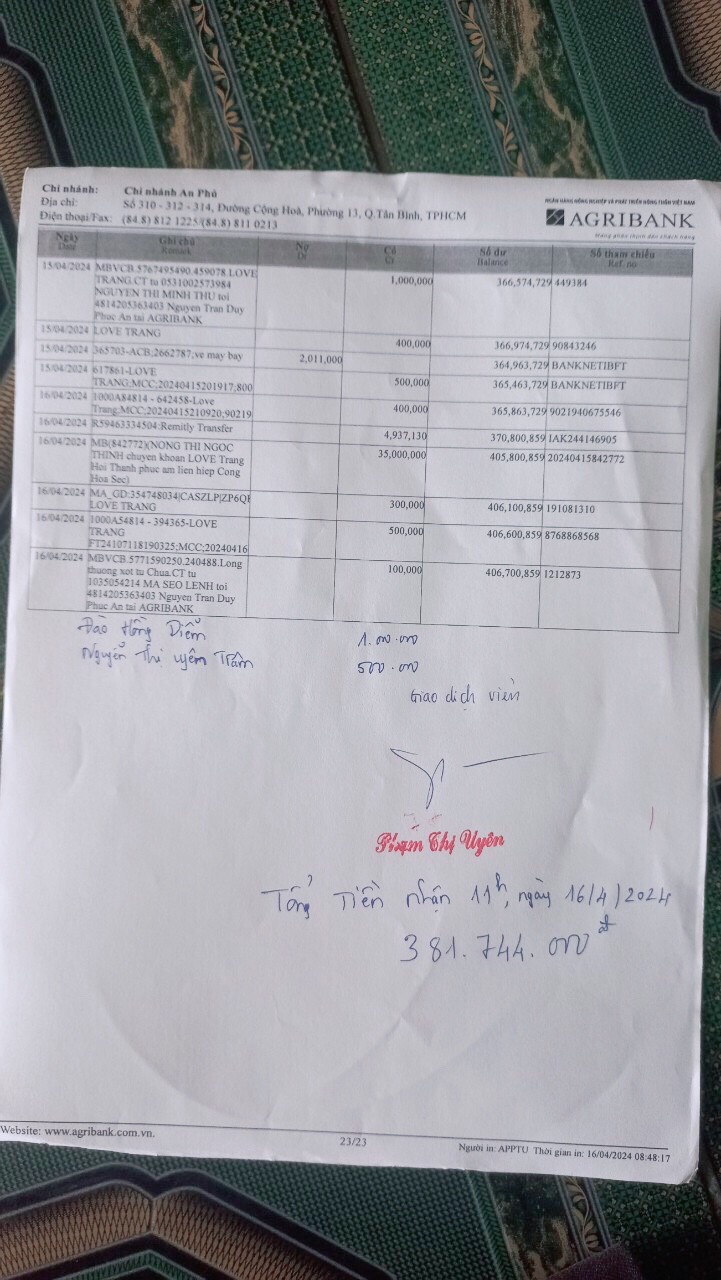 Chi nhánh: Chi nhánh An Phú
Địa chỉ: Số 310 - 312 - 314, Đường Cộng Hoà, Phường 13, Q.Tân Bình, TPHCM
Điện thoại/Fax: (84.8) 812 1225/(84.8) 811 0213
NGÂN HÀNG NÔNG NGHIỆP VÀ PHÁT TRIỂN NÔNG THÔN VIỆT NAM
AGRIBANK
Mang phồn thịnh đến khách hàng
Ngày Ghi chú Nợ Có Số dư Số tham chiếu
Date Remark Dr Cr Balance Ref. no
15/04/2024 MBVCB.5767495490.459078.LOVE 1,000,000 366,574,729 449384
TRANG.CT tu 0531002573984
NGUYEN THI MINH THU toi
4814205363403 Nguyen Tran Duy
Phuc An tai AGRIBANK
15/04/2024 LOVE TRANG 400,000 366,974,729 90843246
15/04/2024 365703-ACB;2662787;ve may bay 2,011,000 364,963,729 BANKNETIBFT
15/04/2024 617861-LOVE 500,000 365,463,729 BANKNETIBFT
TRANG;MCC;20240415201917;800
16/04/2024 1000A84814 - 642458-Love 400,000 365,863,729 9021940675546
Trang;MCC;20240415210920;90219
16/04/2024 R59463334504:Remitly Transfer 4,937,130 370,800,859 IAK244146905
16/04/2024 MB(842772)(NONG THI NGOC 35,000,000 405,800,859 20240415842772
THINH chuyen khoan LOVE Trang
Hoi Thanh phuc am lien hiep Cong
Hoa Sec)
16/04/2024 MA_GD:354748034|CASZLP|ZP6QI 300,000 406,100,859 191081310
LOVE TRANG
16/04/2024 1000A54814 - 394365-LOVE 500,000 406,600,859 8768868568
TRANG
FT24107118190325;MCC;20240416
16/04/2024 MBVCB.5771590250.240488.Long 100,000 406,700,859 1212873
thuong xot tu Chua.CT tu
1035054214 MA SEO LENH toi
4814205363403 Nguyen Tran Duy
Phuc An tai AGRIBANK
Đào Hồng Diễm 1.000.000
Nguyễn Thị Uyên Trâm 500.000
Giao dịch viên
Phạm Thị Uyên
Tổng Tiền nhận 11h, ngày 16/4/2024
381.744.000đ
Website: www.agribank.com.vn.
23/23
Người in: APPTU Thời gian in: 16/04/2024 08:48:17